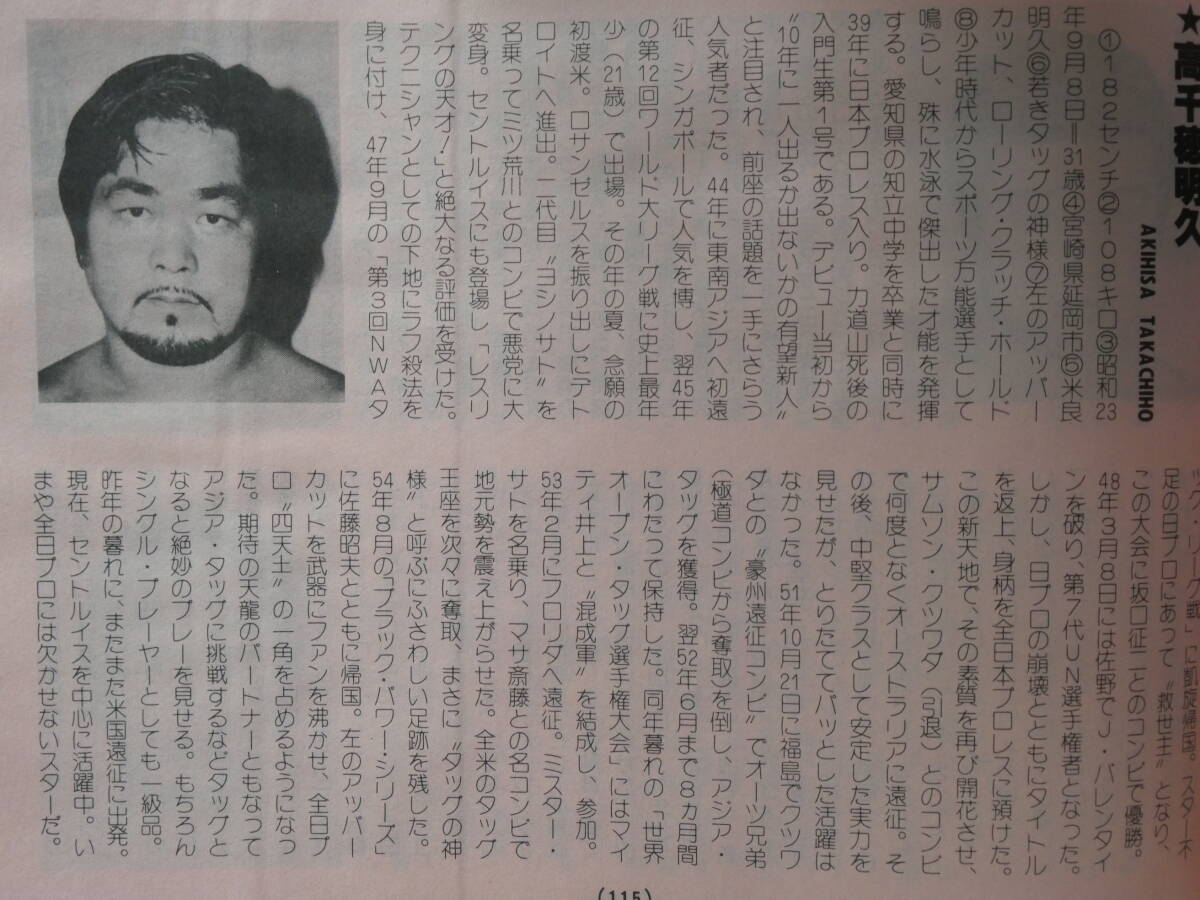 ★高千穂明久
AKIHISA TAKACHIHO
①182センチ②108キロ③昭和23
年9月8日=31歳④宮崎県延岡市⑤米良
明久⑥若きタッグの神様⑦左のアッパー
カット、ローリング・クラッチ・ホールド
⑧少年時代からスポーツ万能選手として
鳴らし、殊に水泳で傑出した才能を発揮
する。愛知県の知立中学を卒業と同時に
39年に日本プロレス入り。力道山死後の
入門生第1号である。デビュー当初から
〝10年に一人出るか出ないかの有望新人〟
と注目され、前座の話題を一手にさらう
人気者だった。44年に東南アジアへ初遠
征、シンガポールで人気を博し、翌45年
の第12回ワールド大リーグ戦に史上最年
少（21歳）で出場。その年の夏、念願の
初渡米。ロサンゼルスを振り出しにデト
ロイトへ進出。二代目〝ヨシノサト〟を
名乗ってミツ荒川とのコンビで悪党に大
変身。セントルイスにも登場し「レスリ
ングの天才！」と絶大なる評価を受けた。
テクニシャンとしての下地にラフ殺法を
身に付け、47年9月の「第3回NWAタ
ッグ・リーグ戦」に凱旋帰国。スター不
足の日プロにあって〝救世主〟となり、
この大会に坂口征二とのコンビで優勝。
48年3月8日には佐野でJ・バレンタイ
ンを破り、第7代UN選手権者となった。
しかし、日プロの崩壊とともにタイトル
を返上、身柄を全日本プロレスに預けた。
この新天地で、その素質を再び開花させ、
サムソン・クツワダ（引退）とのコンビ
で何度となくオーストラリアに遠征。そ
の後、中堅クラスとして安定した実力を
見せたが、とりたててパッとした活躍は
なかった。51年10月21日に福島でクツワ
ダとの〝豪州遠征コンビ〟でオーツ兄弟
（極道コンビから奪取）を倒し、アジア・
タッグを獲得。翌52年6月まで8ヵ月間
にわたって保持した。同年暮れの「世界
オープン・タッグ選手権大会」にはマイ
ティ井上と〝混成軍〟を結成し、参加。
53年2月にフロリダへ遠征。ミスター・
サトを名乗り、マサ斎藤との名コンビで
地元勢を震え上がらせた。全米のタッグ
王座を次々に奪取、まさに〝タッグの神
様〟と呼ぶにふさわしい足跡を残した。
54年8月の「ブラック・パワー・シリーズ」
に佐藤昭夫とともに帰国。左のアッパー
カットを武器にファンを沸かせ、全日プ
ロ〝四天王〟の一角を占めるようになっ
た。期待の天龍のパートナーともなって
アジア・タッグに挑戦するなどタッグと
なると絶妙のプレーを見せる。もちろん
シングル・プレーヤーとしても一級品。
昨年の暮れに、またまた米国遠征に出発。
現在、セントルイスを中心に活躍中。い
まや全日プロには欠かせないスターだ。
(115)